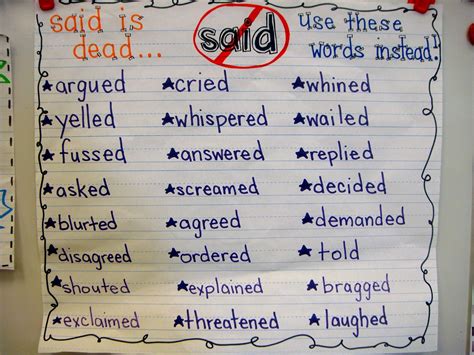 said is said use these
dead... words instead!
argued cried whined
yelled whispered wailed
fussed answered replied
asked screamed decided
blurted agreed demanded
disagreed ordered told
shouted explained bragged
exclaimed threatened laughed